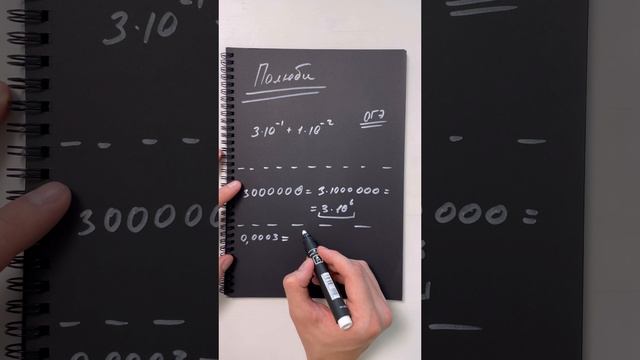 Полюби
ОГЭ
3·10⁻¹ + 1·10⁻²
3000000 = 3·1000000 =
= 3·10⁶
0,0003 =